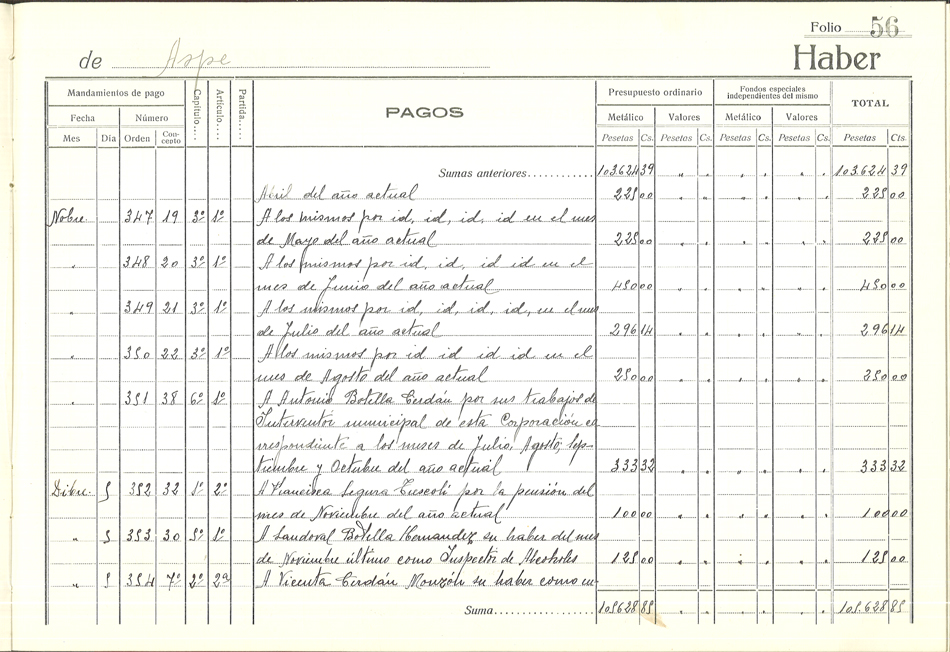 Folio 56
de Aspe Haber
Mandamientos de pago Capítulo.... Artículo.... Partida.... PAGOS Presupuesto ordinario Fondos especiales independientes del mismo TOTAL
Fecha Número Metálico Valores Metálico Valores
Mes Día Orden Concepto Pesetas Cs. Pesetas Cs. Pesetas Cs. Pesetas Cs. Pesetas Cts.
Sumas anteriores............ 103.624 39 " " " " " " 103.624 39
Abril del año actual 225 00 " " " " " " 225 00
Nobre. 347 19 3º 1º A los mismos por id, id, id, id en el mes
de Mayo del año actual 225 00 " " " " " " 225 00
" 348 20 3º 1º A los mismos por id, id, id id en el
mes de Junio del año actual 450 00 " " " " " " 450 00
" 349 21 3º 1º A los mismos por id, id, id, id, en el mes
de Julio del año actual 296 14 " " " " " " 296 14
" 350 22 3º 1º A los mismos por id id id id en el
mes de Agosto del año actual 250 00 " " " " " " 350 00
" 351 38 6º 1º A Antonio Botella Cerdán por sus trabajos de
Interventor municipal de esta Corporación co
rrespondiente a los meses de Julio, Agosto, Sep-
tiembre y Octubre del año actual 333 32 " " " " " " 333 32
Dibre. 5 352 32 1º 2º A Francisca Segura por la pensión del
mes de Noviembre del año actual 100 00 " " " " " " 100 00
" 5 353 30 5º 1º A Sandoval Botella Hernandez su haber del mes
de Noviembre último como Inspector de Alcoholes 125 00 " " " " " " 125 00
" 5 354 7º 2º 2º A Vicenta Cerdán Monzón su haber como en-
Suma.................. 105.628 85 " " " " " " 105.628 85